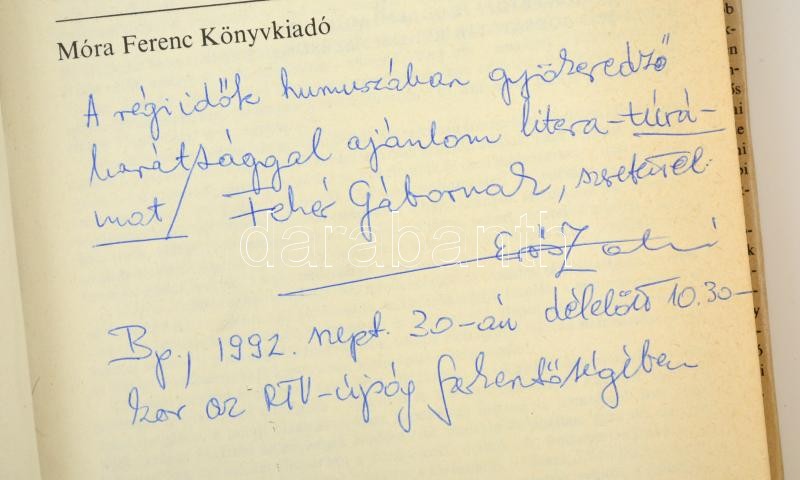 Móra Ferenc Könyvkiadó
A régi idők humuszában gyökeredző
barátsággal ajánlom litera-túrá-
mat/ Fehér Gábornak, szeretettel
Erős Zoltán
darabanth
Bp., 1992. szept. 30-án délelőtt 10.30-
kor az RTV-újság szerkesztőségében